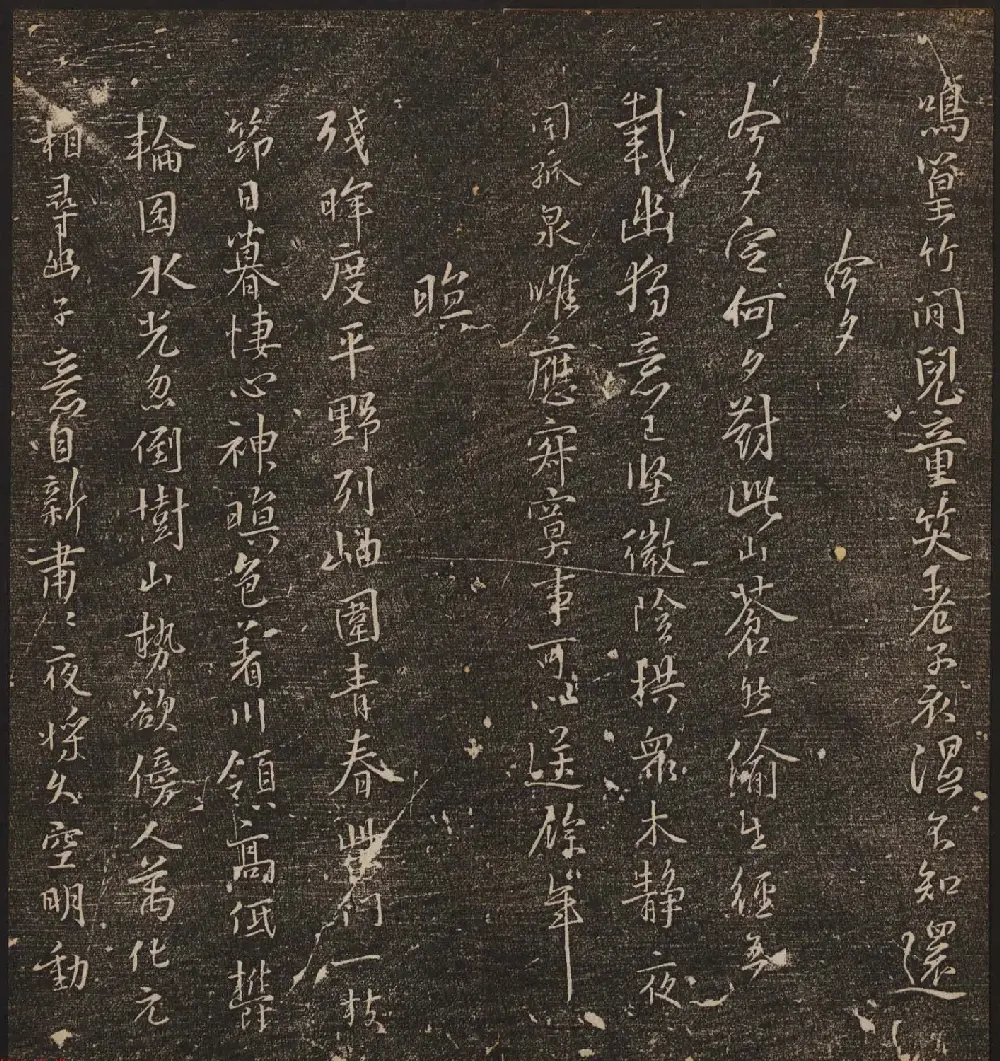 鳴篁竹間兒童笑老子衣濕不知還
今夕
今夕定何夕對此山蒼然偷生經五
載幽獨意已堅微陰拱眾木靜夜
聞孤泉唯應寂寞事可以送餘年
暝
殘暉度平野列岫圍青春柴門一枝
筇日暮悽心神暝色着川領高低欝
輪囷水光忽倒樹山勢欲傍人萬化元
相尋幽子意自新肅〻夜將久空明動